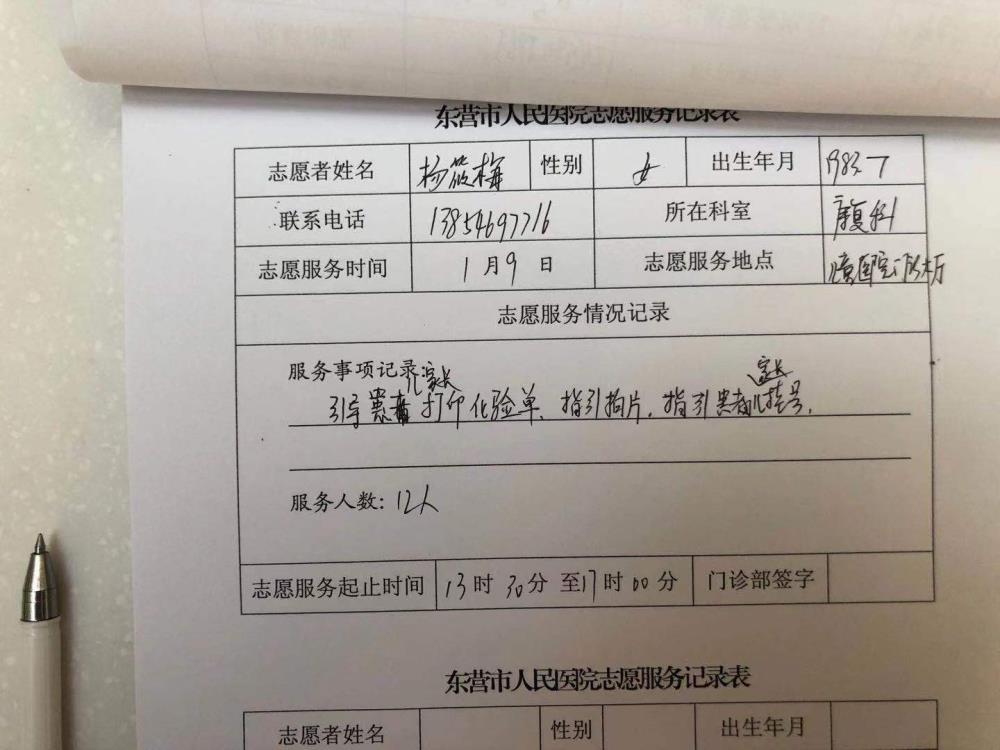 东营市人民医院志愿服务记录表
志愿者姓名 杨筱梅 性别 女 出生年月 1983.7
联系电话 13854697716 所在科室 康复科
志愿服务时间 1月9日 志愿服务地点 儿童医院门诊大厅
志愿服务情况记录
服务事项记录:
儿家长 家长
引导患者打印化验单、指引拍片，指引患者儿挂号.
服务人数：12人
志愿服务起止时间 13时30分至17时00分 门诊部签字
东营市人民医院志愿服务记录表
志愿者姓名 性别 出生年月